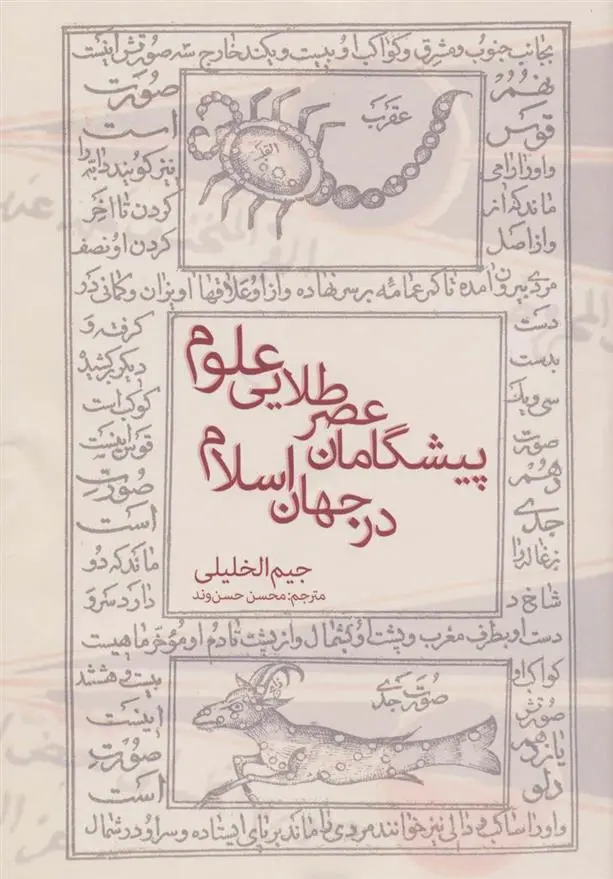 بجانب جنوب و مشرق و کواکب او بیست و یکند خارج سه صورتش اینست
نهم
قوس
و او را رامی
ماند که از
و از اصل
عقرب
القلب
صورت
است
نیز کویند دابه را
کردن تا آخر
کردن او نصف
مردی بیرون آمده تا کمر عمامه بر سر نهاده و از او علاقها آویزان و کمانی در
دست
بدست
سی و یک
صورت
دهم
جدی
بزغاله را
شاخ د
پیشگامان عصر طلایی علوم
در جهان اسلام
جیم الخلیلی
مترجم: محسن حسن‌وند
کرفته و
دیکر کشید
کوکب است
قوس اینست
صورت
است
ماند که دو
دارد سر و
دست او بطرف مغرب و پشت او بشمال و از پشت تا دم او مؤخر ماهیست
کواکب او
صورتش
یازدهم
دلو
صورت جدی
بیست و هشتند
اینست
صورت
است
و او را ساکب و دالی نیز خوانند مردی را ماند بر پای ایستاده و سر او در شمال